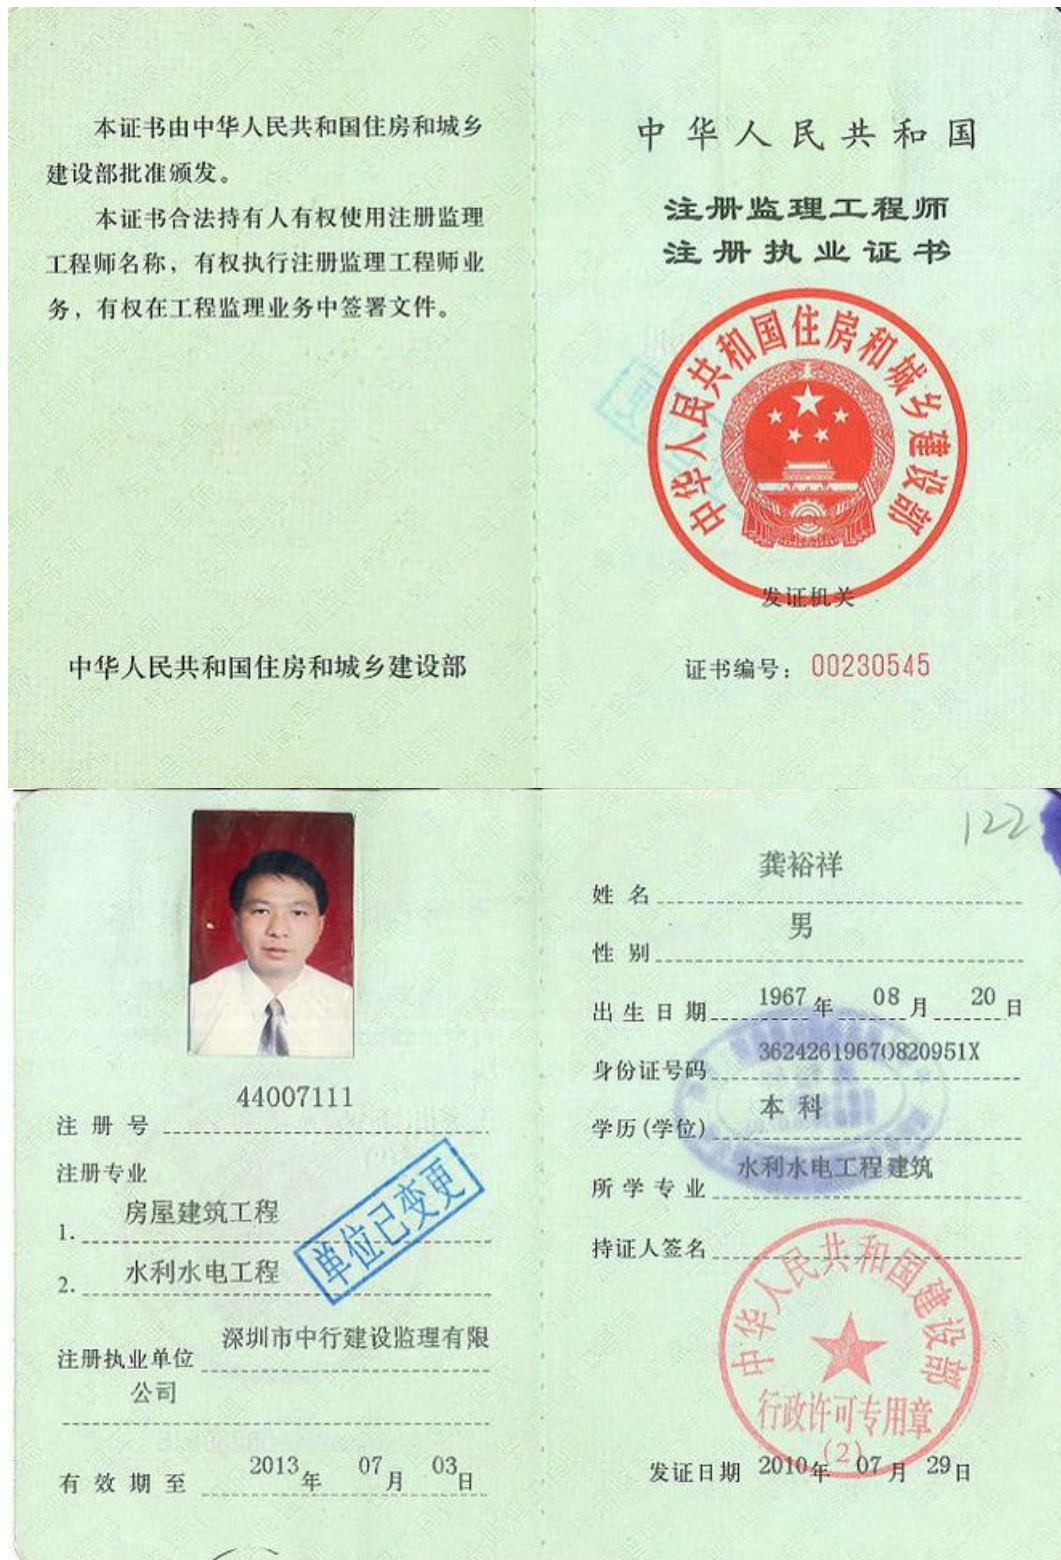 本证书由中华人民共和国住房和城乡
建设部批准颁发。
本证书合法持有人有权使用注册监理
工程师名称，有权执行注册监理工程师业
务，有权在工程监理业务中签署文件。
中华人民共和国住房和城乡建设部
中华人民共和国
注册监理工程师
注册执业证书
中华人民共和国住房和城乡建设部
发证机关
证书编号：00230545
44007111
注册号
注册专业
1. 房屋建筑工程
2. 水利水电工程
单位已变更
注册执业单位 深圳市中行建设监理有限
公司
有效期至 2013年 07月 03日
122
姓名 龚裕祥
性别 男
出生日期 1967年 08月 20日
身份证号码 36242619670820951X
学历(学位) 本科
所学专业 水利水电工程建筑
持证人签名
中华人民共和国建设部
行政许可专用章
(2)
发证日期 2010年 07月 29日